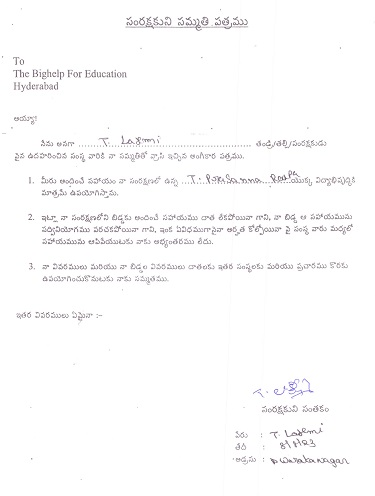 సంరక్షకుని సమ్మతి పత్రము
To
The Bighelp For Education
Hyderabad
అయ్యా!
నేను అనగా T. Laxmi తండ్రి/తల్లి/సంరక్షకుడు
పైన ఉదహరించిన సంస్థ వారికి నా సమ్మతితో వ్రాసి ఇచ్చిన అంగీకార పత్రము.
1. మీరు అందించే సహాయం నా సంరక్షణలో ఉన్న T. యొక్క విద్యాభివృద్ధికి
మాత్రమే ఉపయోగిస్తాను.
2. ఇట్లా నా సంరక్షణలోని బిడ్డకు అందించే సహాయము దాత లేకపోయినా గాని, నా బిడ్డ ఆ సహాయమును
సద్వినియోగము పరచకపోయినా గాని, ఇంక ఏవిధముగానైనా అర్హత కోల్పోయినా పై సంస్థ వారు మధ్యలో
సహాయమును ఆపివేయుటకు నాకు అభ్యంతరము లేదు.
3. నా వివరములు మరియు నా బిడ్డల వివరములు దాతలకు ఇతర సంస్థలకు మరియు ప్రచారము కొరకు
ఉపయోగించుకొనుటకు నాకు సమ్మతము.
ఇతర వివరములు ఏమైనా :-
T. లక్ష్మి
సంరక్షకుని సంతకం
పేరు : T. Laxmi
తేదీ : 8/8/23
అడ్రసు : Dwarakanagar